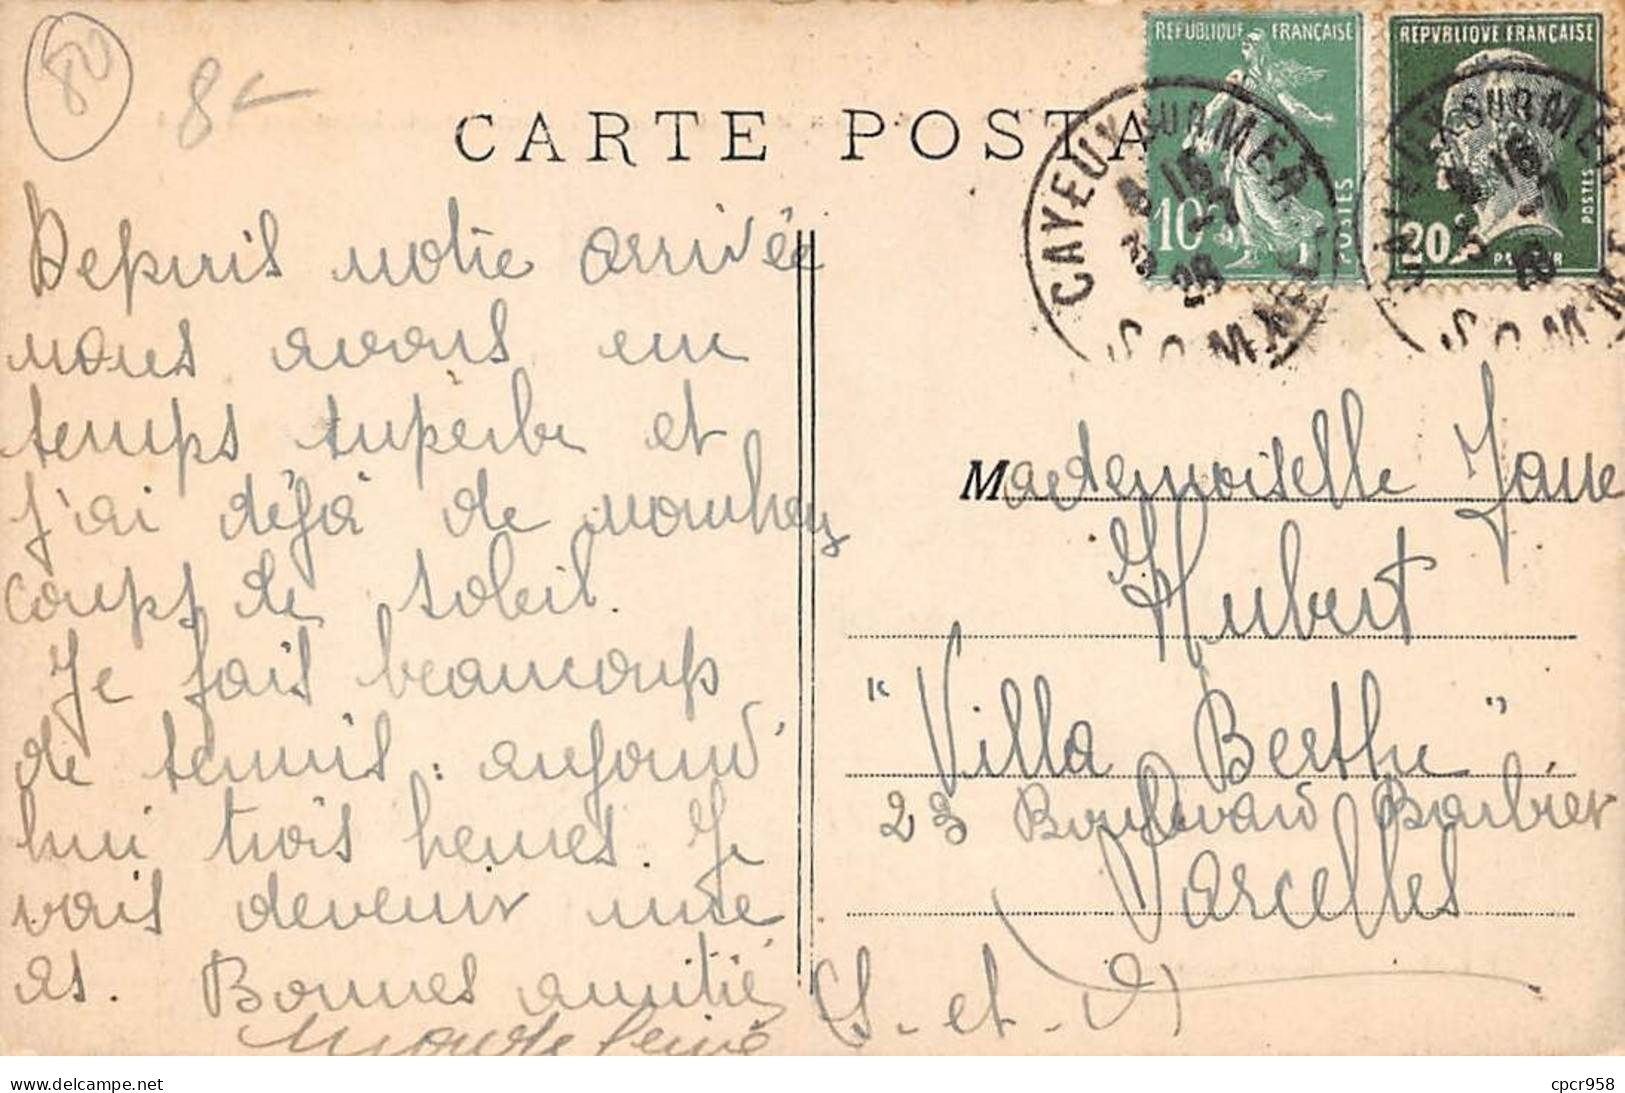 80
8
CARTE POSTA
REPUBLIQUE FRANÇAISE
10c
POSTES
REPVBLIQVE FRANÇAISE
20c
POSTES
CAYEUX SUR MER
SOMME
CAYEUX SUR MER
SOMME
Depuis notre arrivée
nous avons eu
temps superbe et
j'ai déjà de nombreux
coups de soleil.
Je fais beaucoup
de tennis : aujourd'
hui trois heures. Je
vais devenir une
as. Bonnes amitiés
Mademoiselle Jane
Hubert
"Villa Berthe".
23 Boulevard Barbier
Sarcelles
(S.-et-O)
cpcr958